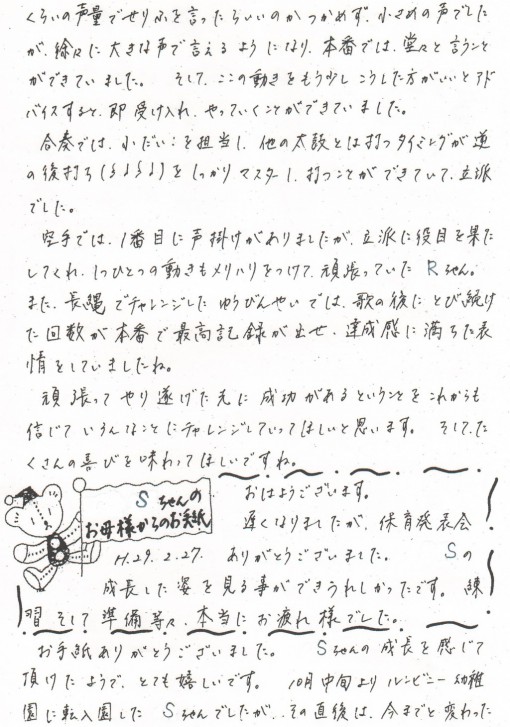 くらいの声量でせりふを言ったらいいのかつかめず、小さめの声でした
が、徐々に大きな声で言えるようになり、本番では、堂々と言うこと
ができていました。 そして、ここの動きをもう少しこうした方がいいとアド
バイスすると、即受け入れ、やっていくことができていました。
合奏では、小だいこを担当し、他の太鼓とは打つタイミングが逆
の後打ち()をしっかりマスターし、打つことができていて、立派
でした。
空手では、1番目に声掛けがありましたが、立派に役目を果た
してくれ、1つひとつの動きもメリハリをつけて、頑張っていた Rちゃん。
また、長縄でチャレンジしたゆうびんやさんでは、歌の後にとび続け
た回数が本番で最高記録が出せ、達成感に満ちた表
情をしていましたね。
頑張ってやり遂げた先に成功があるということをこれからも
信じていろんなことにチャレンジしていってほしいと思います。 そして、た
くさんの喜びを味わってほしいですね。
Sちゃんの
お母様からのお手紙
おはようございます。
遅くなりましたが、保育発表会
H.29.2.27. ありがとうございました。 Sの
成長した姿を見る事ができうれしかったです。 練
習そして準備等々、本当にお疲れ様でした。
お手紙ありがとうございました。 Sちゃんの成長を感じて
頂けたようで、とても嬉しいです。 10月中旬よりルンビニー幼稚
園に転入園したSちゃんでしたが、その直後は、今までと変わった